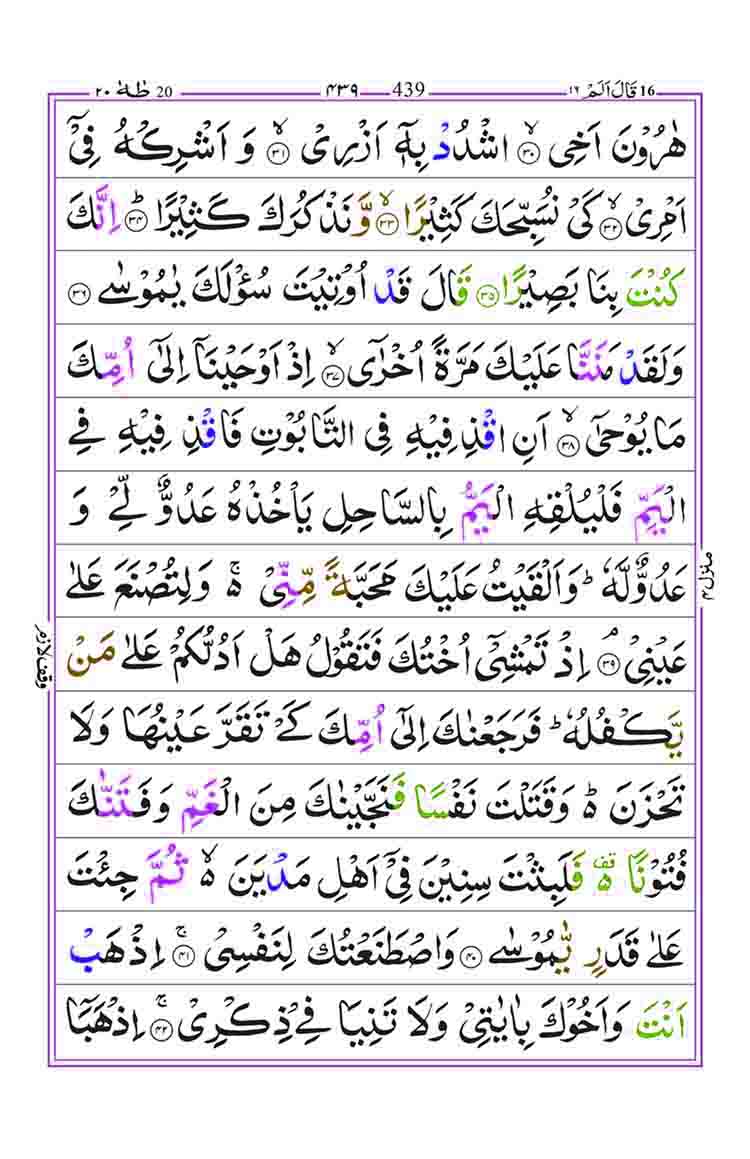 ٢٠ طٰهٰ 20 ٤٣٩ 439 ١٦ قَالَ اَلَمۡ 16
هٰرُوۡنَ اَخِى ۙ‏﴿۳۰﴾ اشۡدُدۡ بِهٖۤ اَزۡرِىۡ ۙ‏﴿۳۱﴾ وَ اَشۡرِكۡهُ فِىۡۤ
اَمۡرِىۡ ۙ‏﴿۳۲﴾ كَىۡ نُسَبِّحَكَ كَثِيۡرًا ۙ‏﴿۳۳﴾ وَّنَذۡكُرَكَ كَثِيۡرًا ؕ‏﴿۳۴﴾ اِنَّكَ
كُنۡتَ بِنَا بَصِيۡرًا‏﴿۳۵﴾ قَالَ قَدۡ اُوۡتِيۡتَ سُؤۡلَكَ يٰمُوۡسٰى‏﴿۳۶﴾
وَلَقَدۡ مَنَنَّا عَلَيۡكَ مَرَّةً اُخۡرٰٓى ۙ‏﴿۳۷﴾ اِذۡ اَوۡحَيۡنَاۤ اِلٰٓى اُمِّكَ
مَا يُوۡحٰٓى ۙ‏﴿۳۸﴾ اَنِ اقۡذِفِيۡهِ فِى التَّابُوۡتِ فَاقۡذِفِيۡهِ فِى
الۡيَمِّ فَلۡيُلۡقِهِ الۡيَمُّ بِالسَّاحِلِ يَاۡخُذۡهُ عَدُوٌّ لِّىۡ وَ
عَدُوٌّ لَّهٗ‌ ؕ وَاَلۡقَيۡتُ عَلَيۡكَ مَحَبَّةً مِّنِّىۡ ۚ۬ وَلِتُصۡنَعَ عَلٰى
عَيۡنِىۡ ۘ‏﴿۳۹﴾ اِذۡ تَمۡشِىۡۤ اُخۡتُكَ فَتَقُوۡلُ هَلۡ اَدُلُّكُمۡ عَلٰى مَنۡ
يَّكۡفُلُهٗ‌ ؕ فَرَجَعۡنٰكَ اِلٰٓى اُمِّكَ كَىۡ تَقَرَّ عَيۡنُهَا وَلَا
تَحۡزَنَ ؕ۬ وَقَتَلۡتَ نَفۡسًا فَنَجَّيۡنٰكَ مِنَ الۡغَمِّ وَفَتَنّٰكَ
فُتُوۡنًا ۫۬ فَلَبِثۡتَ سِنِيۡنَ فِىۡۤ اَهۡلِ مَدۡيَنَ ۙ۬ ثُمَّ جِئۡتَ
عَلٰى قَدَرٍ يّٰمُوۡسٰى‏﴿۴۰﴾ وَاصۡطَنَعۡتُكَ لِنَفۡسِىۡ‌ۚ‏﴿۴۱﴾ اِذۡهَبۡ
اَنۡتَ وَاَخُوۡكَ بِاٰيٰتِىۡ وَلَا تَنِيَا فِىۡ ذِكۡرِىۡ‌ۚ‏﴿۴۲﴾ اِذۡهَبَاۤ
منزل ۴
وقف لازم